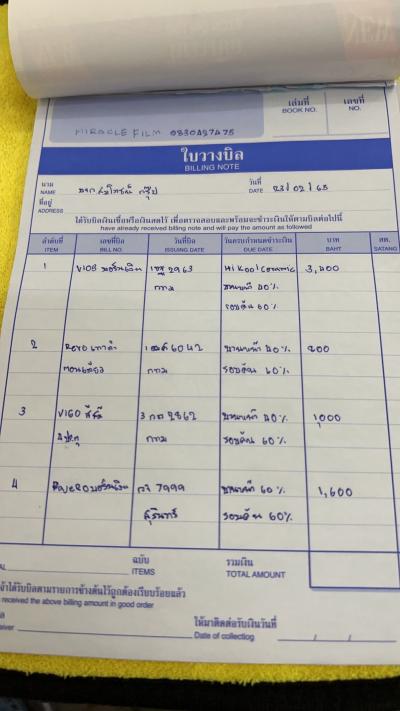 MIRACLE FILM 0830427475
เล่มที่ เลขที่
BOOK NO. NO.
ใบวางบิล
BILLING NOTE
นาม
NAME
วันที่
DATE 23/02/65
ที่อยู่
ADDRESS
ได้รับบิลเงินเชื่อหรือเงินสดไว้ เพื่อตรวจสอบและพร้อมจะชำระเงินให้ตามบิลต่อไปนี้
have already received billing note and will pay the amount as followed
ลำดับที่ เลขที่บิล วันที่บิล วันครบกำหนดชำระเงิน บาท สต.
ITEM BILL NO. ISSUING DATE DUE DATE BAHT SATANG
1 2963 Hi Kool Ceramic 3,400
กทม บานหน้า 40%
รอบคัน 60%
2 6042 บานหน้า 40% 800
กทม รอบคัน 60%
3 VIGO สี่ 3 2862 บานหน้า 40% 1,000
กทม รอบคัน 60%
4 PAJERO 7999 บานหน้า 60% 1,600
สุรินทร์ รอบคัน 60%
ฉบับ รวมเงิน
ITEMS TOTAL AMOUNT
ได้รับบิลตามรายการข้างต้นไว้ถูกต้องเรียบร้อยแล้ว
received the above billing amount in good order
ให้มาติดต่อรับเงินวันที่
Date of collectiog / /